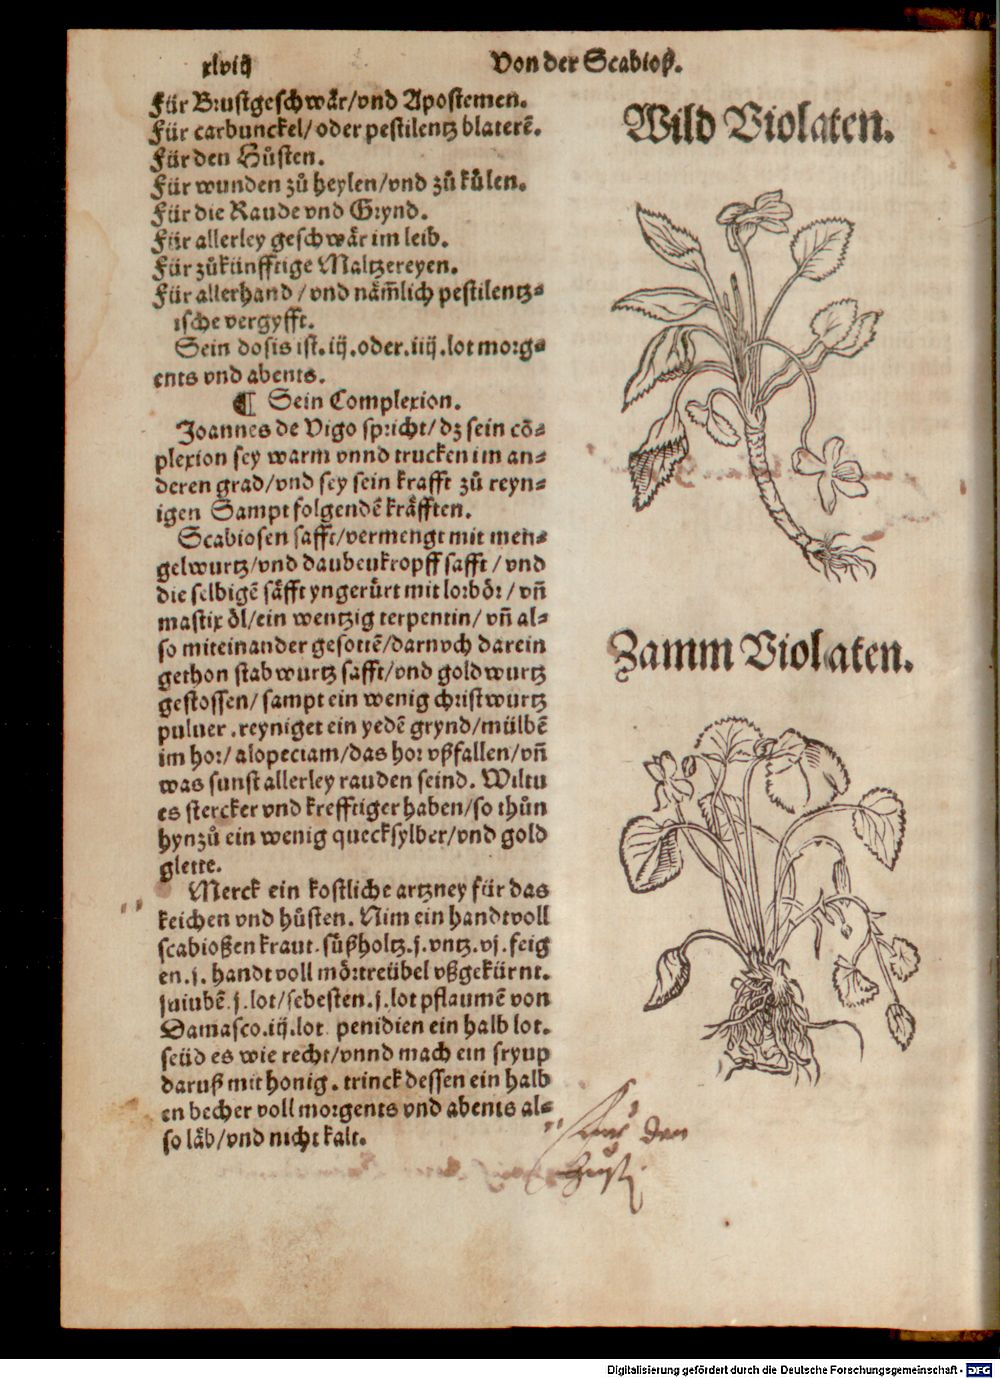 xlviij
Von der Scabioß.
Für Brustgeschwår/vnd Apostemen.
Für carbunckel/oder pestilentz blaterē.
Für den Hůsten.
Für wunden zů heylen/vnd zů kůlen.
Für die Raude vnd Grynd.
Für allerley geschwår im leib.
Für zůkünfftige Maltzereyen.
Für allerhand/vnd nåm̄lich pestilentz⸗
ische vergyfft.
Sein dosis ist.iij.oder.iiij.lot morg⸗
ents vnd abents.
¶ Sein Complexion.
Joannes de Vigo spricht/dz sein cō⸗
plexion sey warm vnnd trucken im an⸗
deren grad/vnd sey sein krafft zů reyn⸗
igen Sampt folgendē kråfften.
Scabiosen safft/vermengt mit men⸗
gelwurtz/vnd daubenkropff safft/vnd
die selbigē såfft yngerůrt mit lorbôr/vn̄
mastix ôl/ein wentzig terpentin/vn̄ al⸗
so miteinander gesottē/darnoch darein
gethon stabwurtz safft/vnd goldwurtz
gestossen/sampt ein wenig christwurtz
puluer.reyniget ein yedē grynd/mülbē
im hor/alopeciam/das hor vßfallen/vn̄
was sunst allerley rauden seind. Wiltu
es stercker vnd krefftiger haben/so thůn
hynzů ein wenig quecksylber/vnd gold
glette.
Merck ein kostliche artzney für das
keichen vnd hůsten. Nim ein handtvoll
scabioßen kraut.sůßholtz.j.vntz.vj.feig
en.j.handtvoll môrtreübel vßgekürnt.
juiubē.j.lot/sebesten.j.lot pflaumē von
Damasco.iij.lot penidien ein halb lot.
seüd es wie recht/vnnd mach ein sryup
daruß mit honig.trinck dessen ein halb
en becher voll morgents vnd abents al⸗
so låb/vnd nicht kalt.
den
Wild Violaten.
Zamm Violaten.
Digitalisierung gefördert durch die Deutsche Forschungsgemeinschaft - DFG